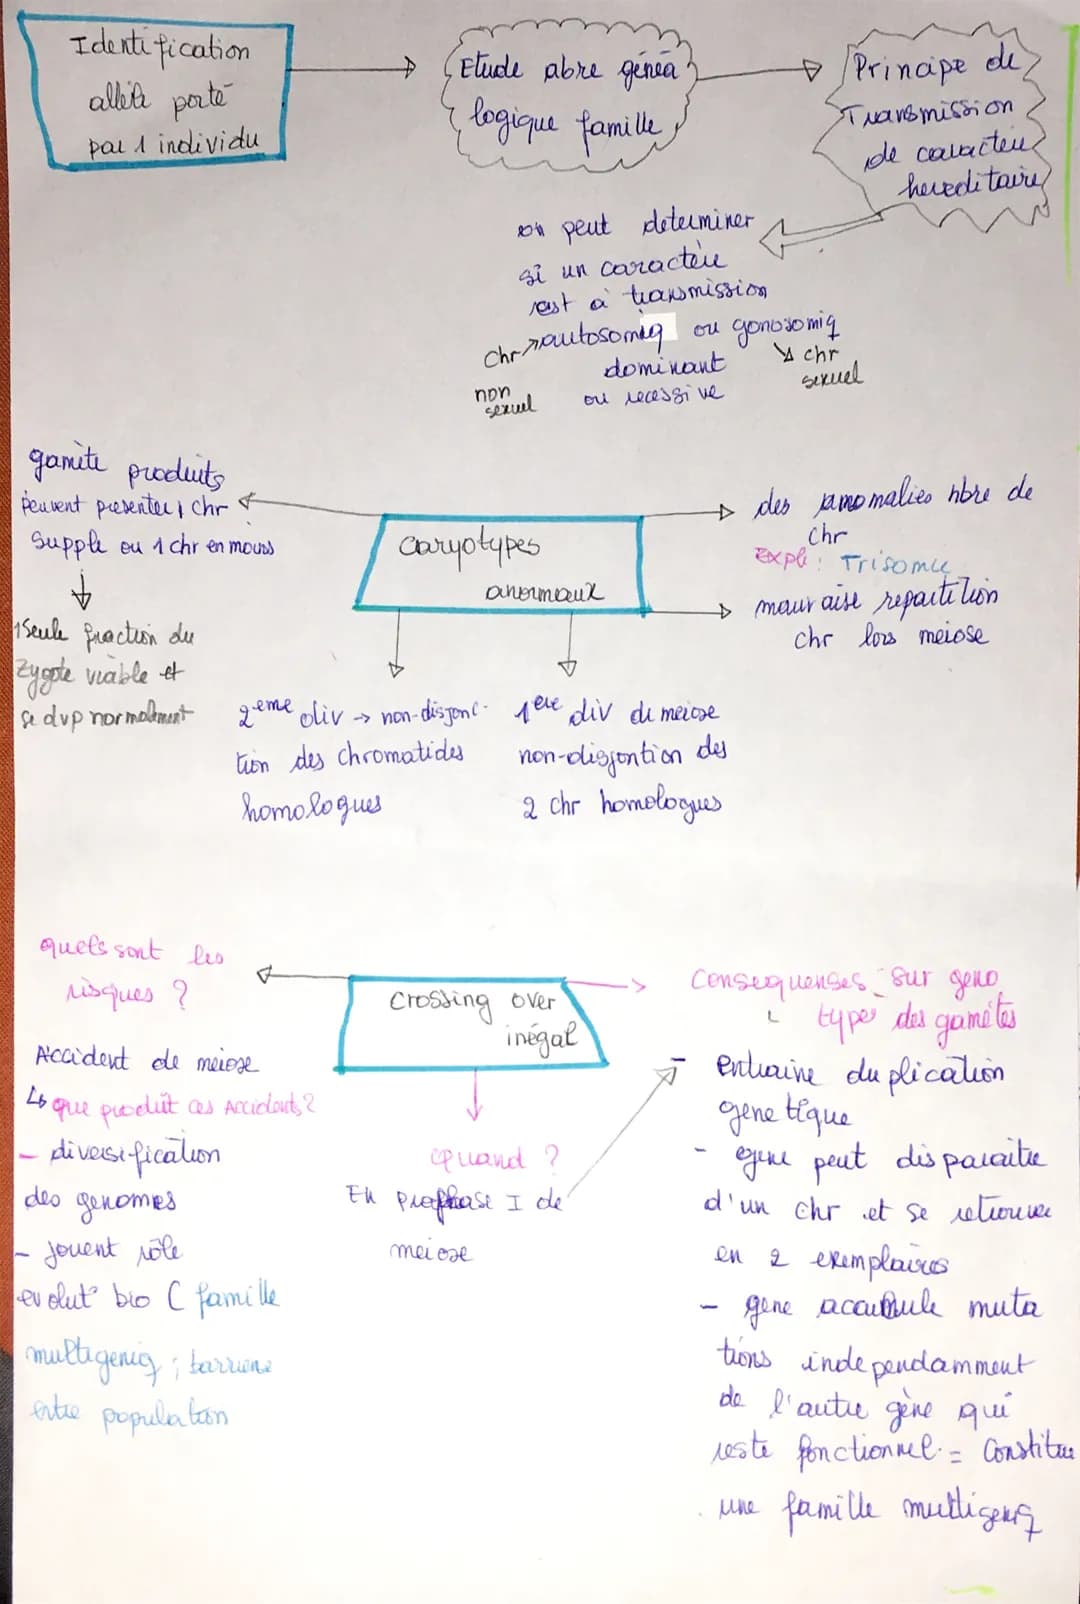 Identification
allèle porté
par 1 individu
Etude abre généa
logique famille
Principe de
Transmission
de caractère
hereditaire
on peut determiner
si un caractère
est à transmission
autosomiq ou gonosomiq
chr
non
sexuel
dominant
ou recessive
chr
sexuel
gamète produits
peuvent presenter 1 chr
supple ou 1 chr en moins
1 Seule fraction du
Zygote viable et
se dvp normalement
caryotypes
anormaux
des anomalies nbre de
chr
Exple : Trisomie
mauvaise repartition
chr lors meiose
2eme div → non-disjonc-
tion des chromatides
homologues
1ere div de meiose
non-disjontion des
2 chr homologues
quels sont les
risques ?
Accident de meiose
↳ que produit ces Accidents ?
- diversification
des genomes
- jouent rôle
evolut° bio ( famille
multigeniq ; barriere
entre population
crossing over
inégal
quand ?
En prophase I de
meiose
Consequenses sur geno
types des gamètes
- entraine duplication
genetique
- gene peut disparaitre
d'un chr et se retrouver
en 2 exemplaires
- gene accumule muta
tions independamment
de l'autre gène qui
reste fonctionnel = Constitue
une famille multigeniq